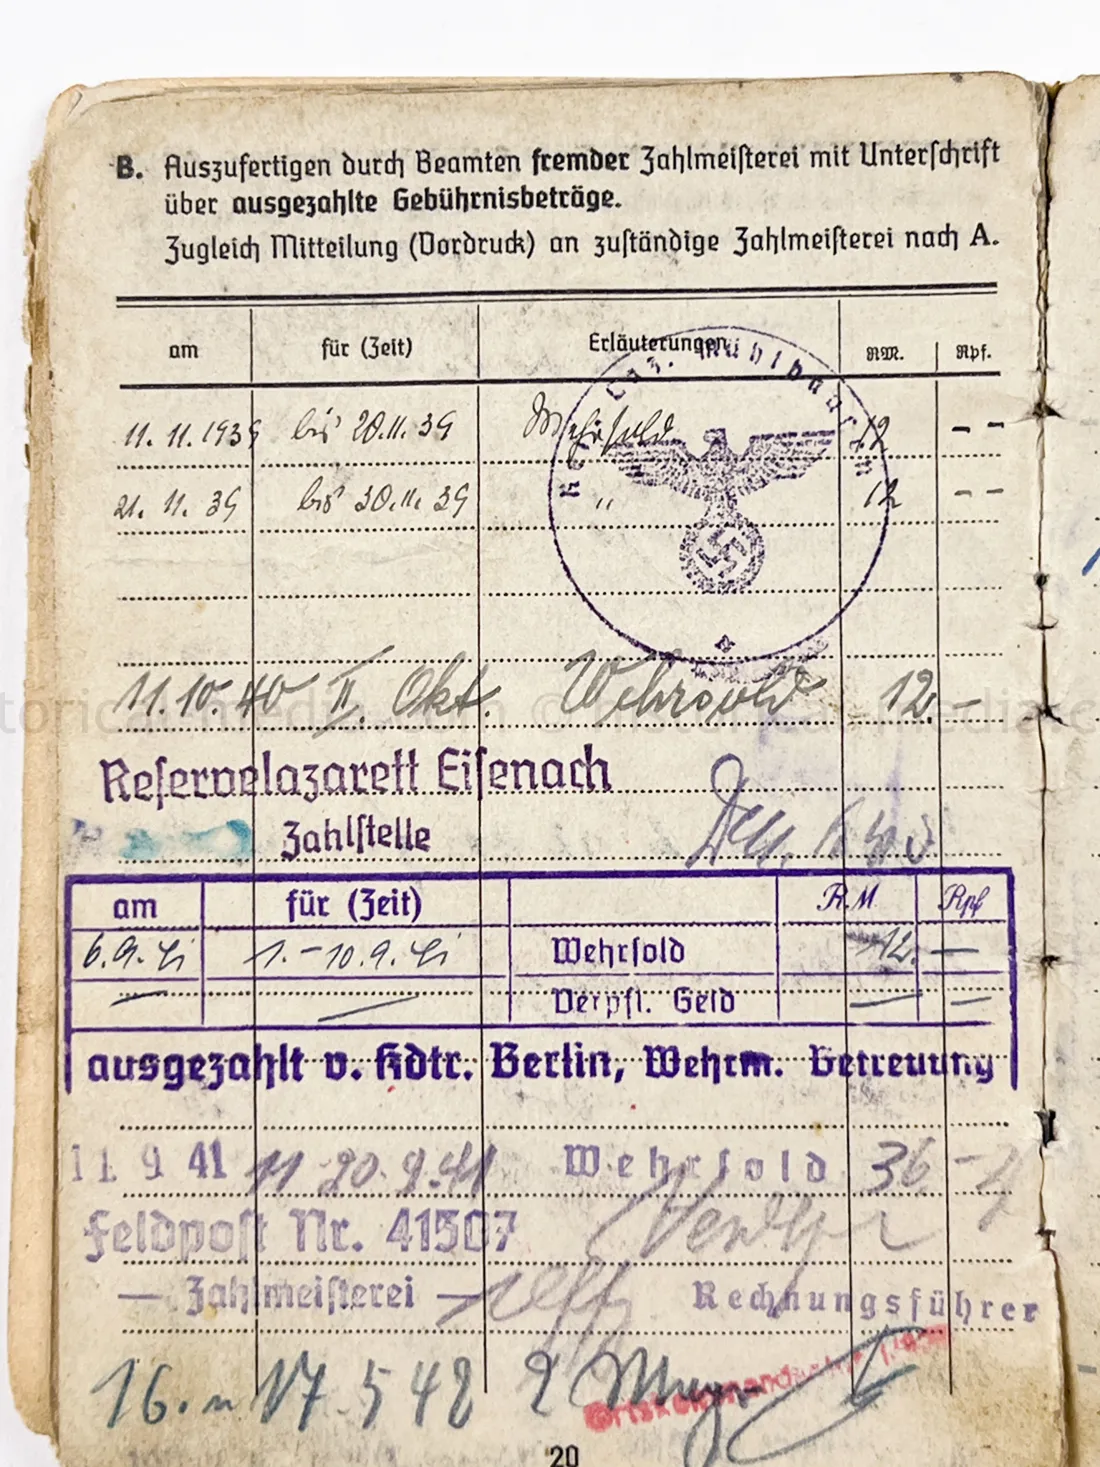 B. Auszufertigen durch Beamten fremder Zahlmeisterei mit Unterschrift
über ausgezahlte Gebührnisbeträge.
Zugleich Mitteilung (Vordruck) an zuständige Zahlmeisterei nach A.
am für (Zeit) Erläuterungen RM. Rpf.
Res. Laz. Mühlhausen
11. 11. 1939 bis 20.11.39 Wehrsold 12 – –
21. 11. 39 bis 30.11.39 " 12 – –
11.10.40 II. Okt. Wehrsold 12. –
Reservelazarett Eisenach
Zahlstelle
am für (Zeit) R.M. Rpf
6.9.41 1.–10.9.41 Wehrsold 12. —
— — Verpfl. Geld — —
ausgezahlt v. Kdtr. Berlin, Wehrm. Betreuung
11 9 41 11-20.9.41 Wehrsold 36 –
Feldpost Nr. 41507
— Zahlmeisterei — Rechnungsführer
16. u 17 5 42 2
Ortskommandantur
20